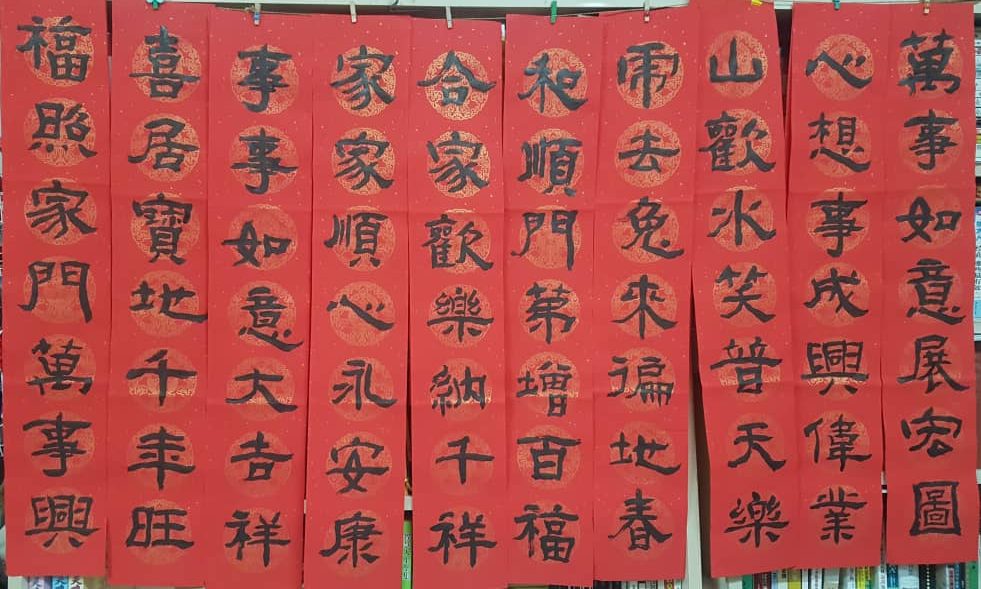 萬事如意展宏圖
心想事成興偉業
山歡水笑普天樂
虎去兔來遍地春
和順門第增百福
合家歡樂納千祥
家家順心永安康
事事如意大吉祥
喜居寶地千年旺
福照家門萬事興